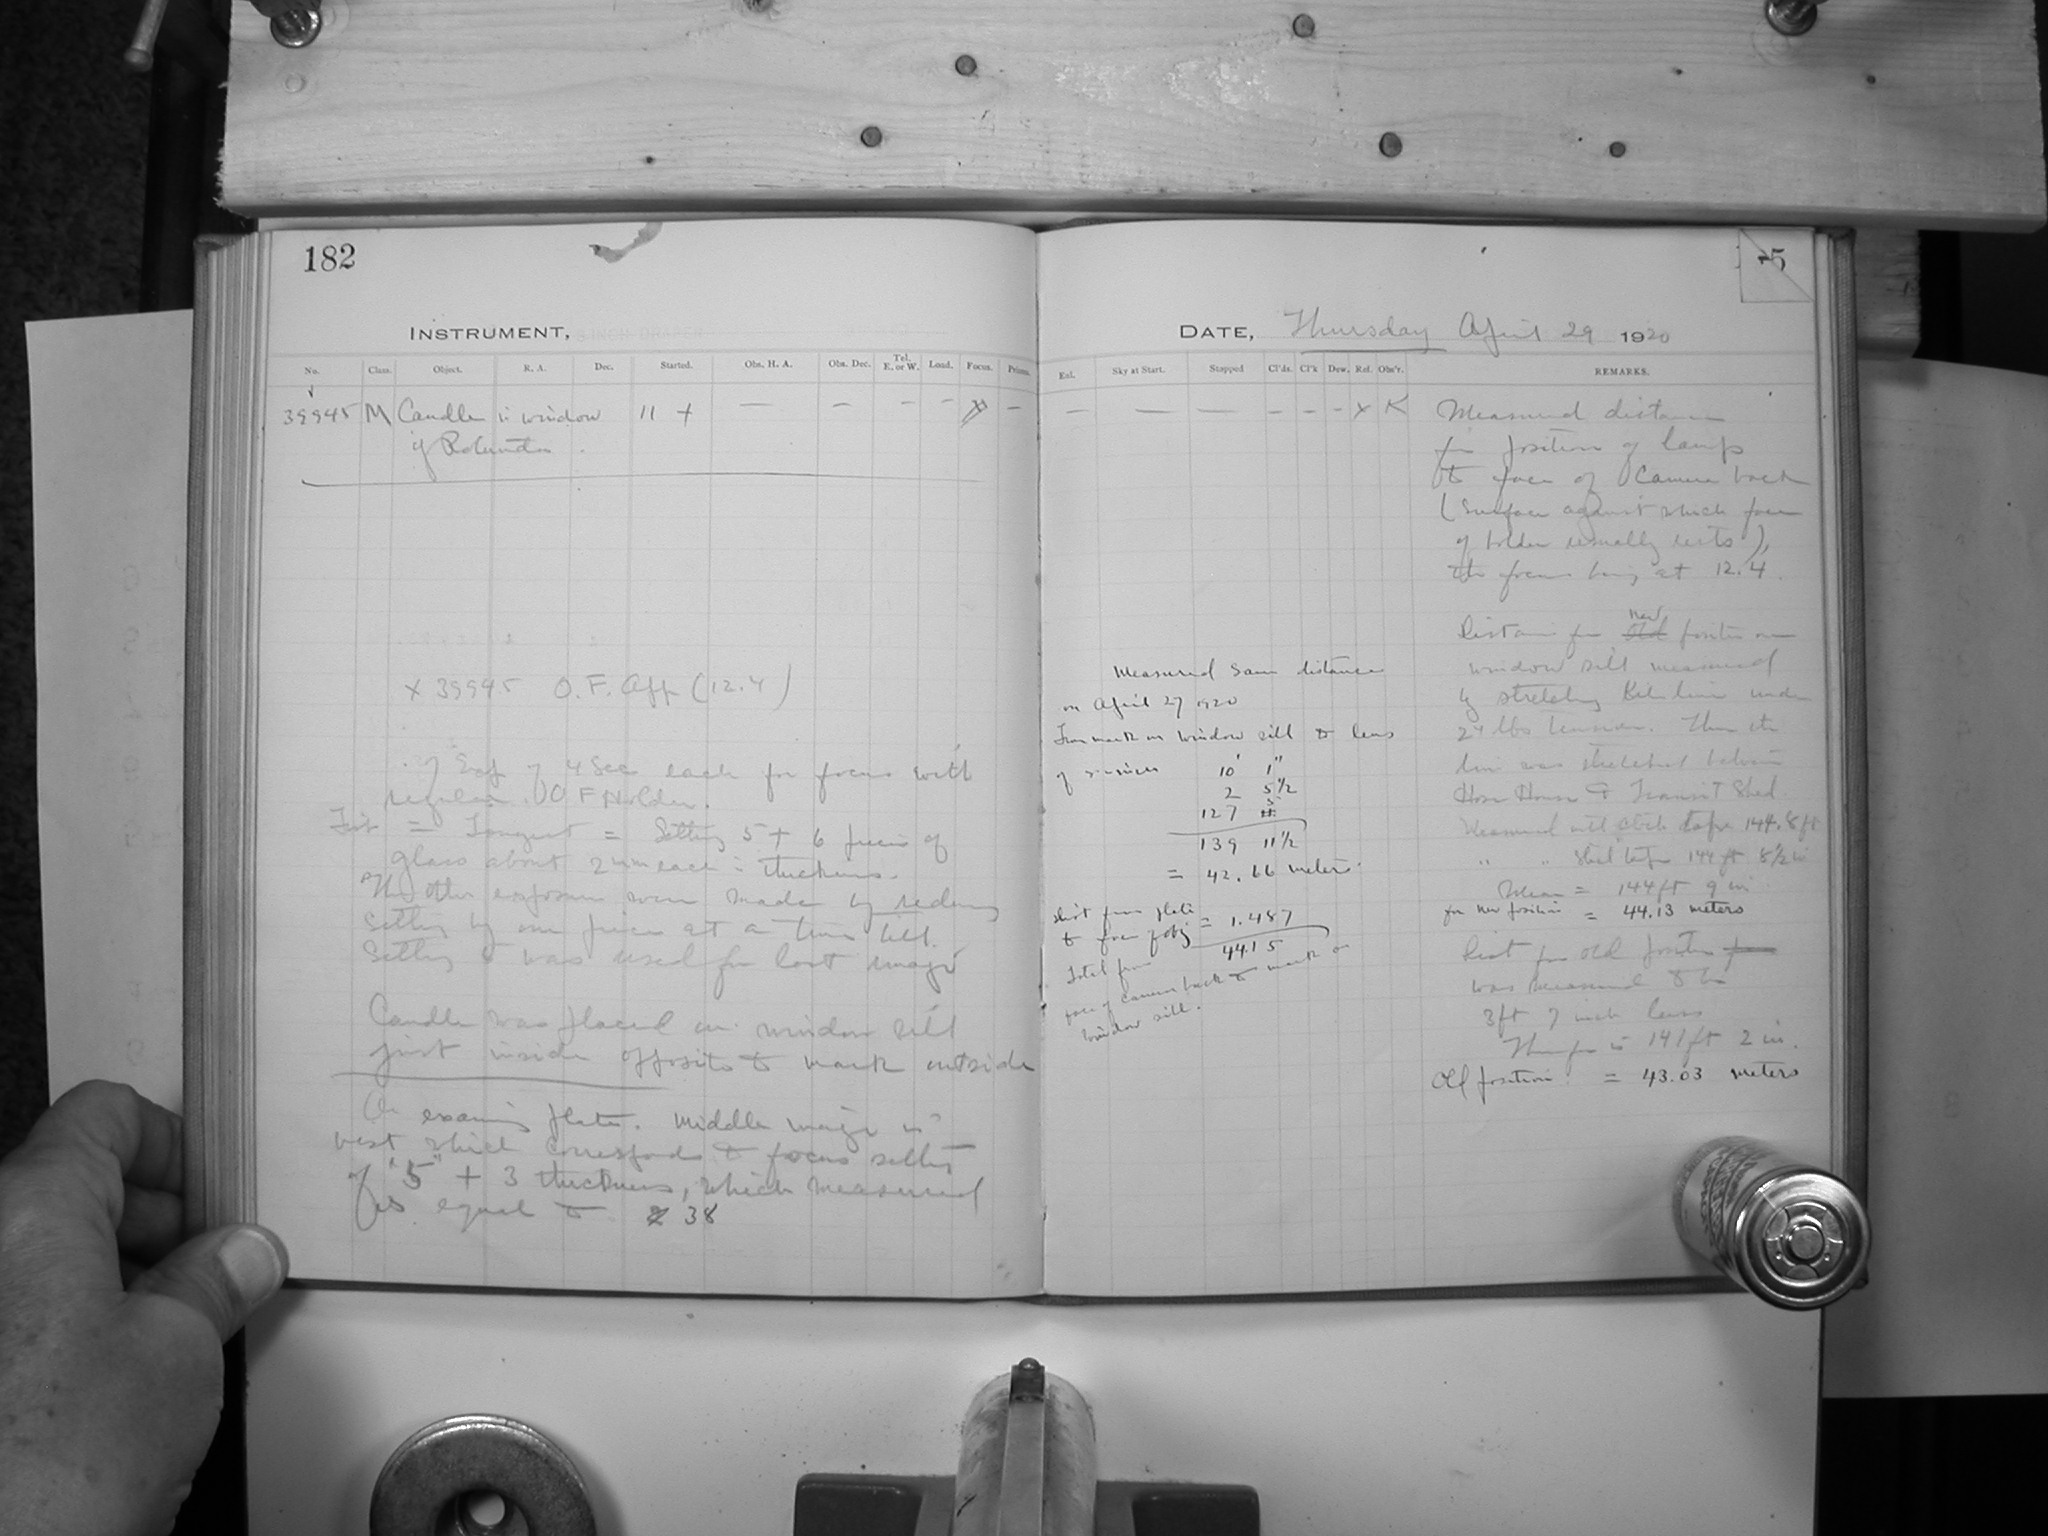 182
INSTRUMENT,
No. Class. Object. R. A. Dec. Started. Obs. H. A. Obs. Dec. Tel. E. or W. Load. Focus. Prisms.
39945 M Candle in window 11 + — — — — — 
of Rotunda.
× 39945 O. F. App (12.4)
Exp of 4 Sec each for focus with
regular O F Holder.
First = Longest = Setting 5 + 6 pieces of
glass about 2 mm each = thickness.
The other exposures were made by reducing
setting by one piece at a time till
Setting 5 was used for last image
Candle was placed on window sill
just inside opposite to mark outside
On examining plate. Middle image is
best which corresponds to focus setting
of "5" + 3 thickness, which measured
is equal to 38
5
DATE, Thursday April 29 1920
Ext. Sky at Start. Stopped Cl'ds. Cl'k Dew. Ref. Obs'r. REMARKS.
— — — — — — × K
Measured distance
for position of lamp
to face of Camera back
(surface against which face
of holder usually rests),
the focus being at 12.4.
Distance for old new position on
window sill measured
by stretching line under
24 lbs tension. Then the
line was stretched between
Hose House & Transit Shed.
Measured with cloth tape 144.8 ft
" " Steel tape 144 ft 8 1/2 in
Mean = 144 ft 9 in
for new position = 44.13 meters
Dist for old position
was measured to be
3 ft 7 inch less
Therefore is 141 ft 2 in.
Old position = 43.03 meters
Measured same distance
on April 27 1920
From mark on window sill to lens
of
10' 1"
2 5 1/2
127 5
139 11 1/2
= 42.66 meters.
dist from plate
to face of obj = 1.487
44.15
Total from
face of camera back to mark on
window sill.